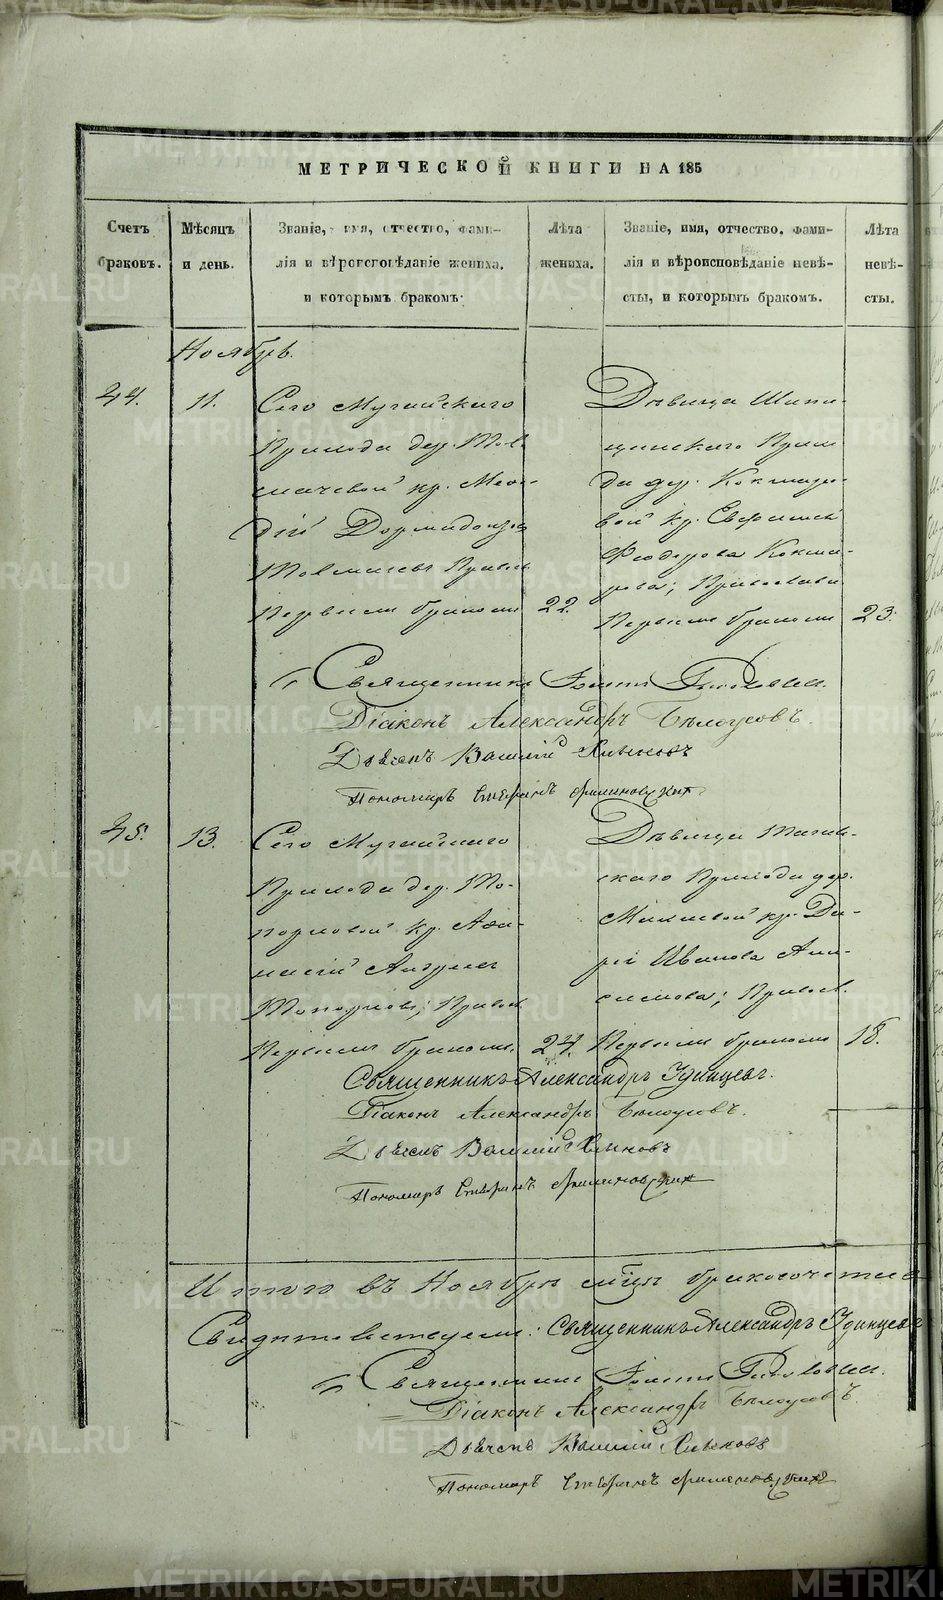 МЕТРИЧЕСКОЙ КНИГИ НА 185
Счетъ браковъ.
Мѣсяцъ и день.
Званіе, имя, отчество, фами-
лія и вѣроисповѣданіе жениха,
и которымъ бракомъ.
Лѣта жениха.
Званіе, имя, отчество, фами-
лія и вѣроисповѣданіе невѣ-
сты, и которымъ бракомъ.
Лѣта невѣ-
сты.
Ноябрь.
44.
11.
Сего Мугайскаго
Прихода дер. Тол
мачевой кр. Меѳо-
дій Дормидонтов
Толмачевъ Правосл
Первымъ бракомъ
22.
Дѣвица Шипи-
цинскаго Прихо
да дер. Кокшаро-
вой кр. Евфимія
Феодорова Кокша-
рова; Православн
Первымъ бракомъ
23.
Священникъ Іоаннъ
Діаконъ Александръ Бѣлоусовъ.
Дьячекъ Василій Хлыновъ
Пономарь Стефанъ Филиновскихъ
45.
13.
Сего Мугайскаго
Прихода дер. То-
порковой кр. Аѳа-
насій Андреевъ
Топорковъ; Правосл
Первымъ бракомъ.
24.
Дѣвица Тагиль-
скаго Прихода дер.
кр. Да-
рія Иванова Ани-
симова; Правосл.
Первымъ бракомъ
18.
Священникъ Александръ Удинцевъ.
Діаконъ Александръ Бѣлоусовъ.
Дьячекъ Василій Хлыновъ
Пономарь Стефанъ Филиновскихъ
Итого въ Ноябрѣ мцѣ бракосочетаній
Свидѣтельствуемъ: Священникъ Александръ Удинцевъ
Священникъ Іоаннъ
Діаконъ Александръ Бѣлоусовъ
Дьячекъ Василій Хлыновъ
Пономарь Стефанъ Филиновскихъ
METRIKI.GASO-URAL.RU